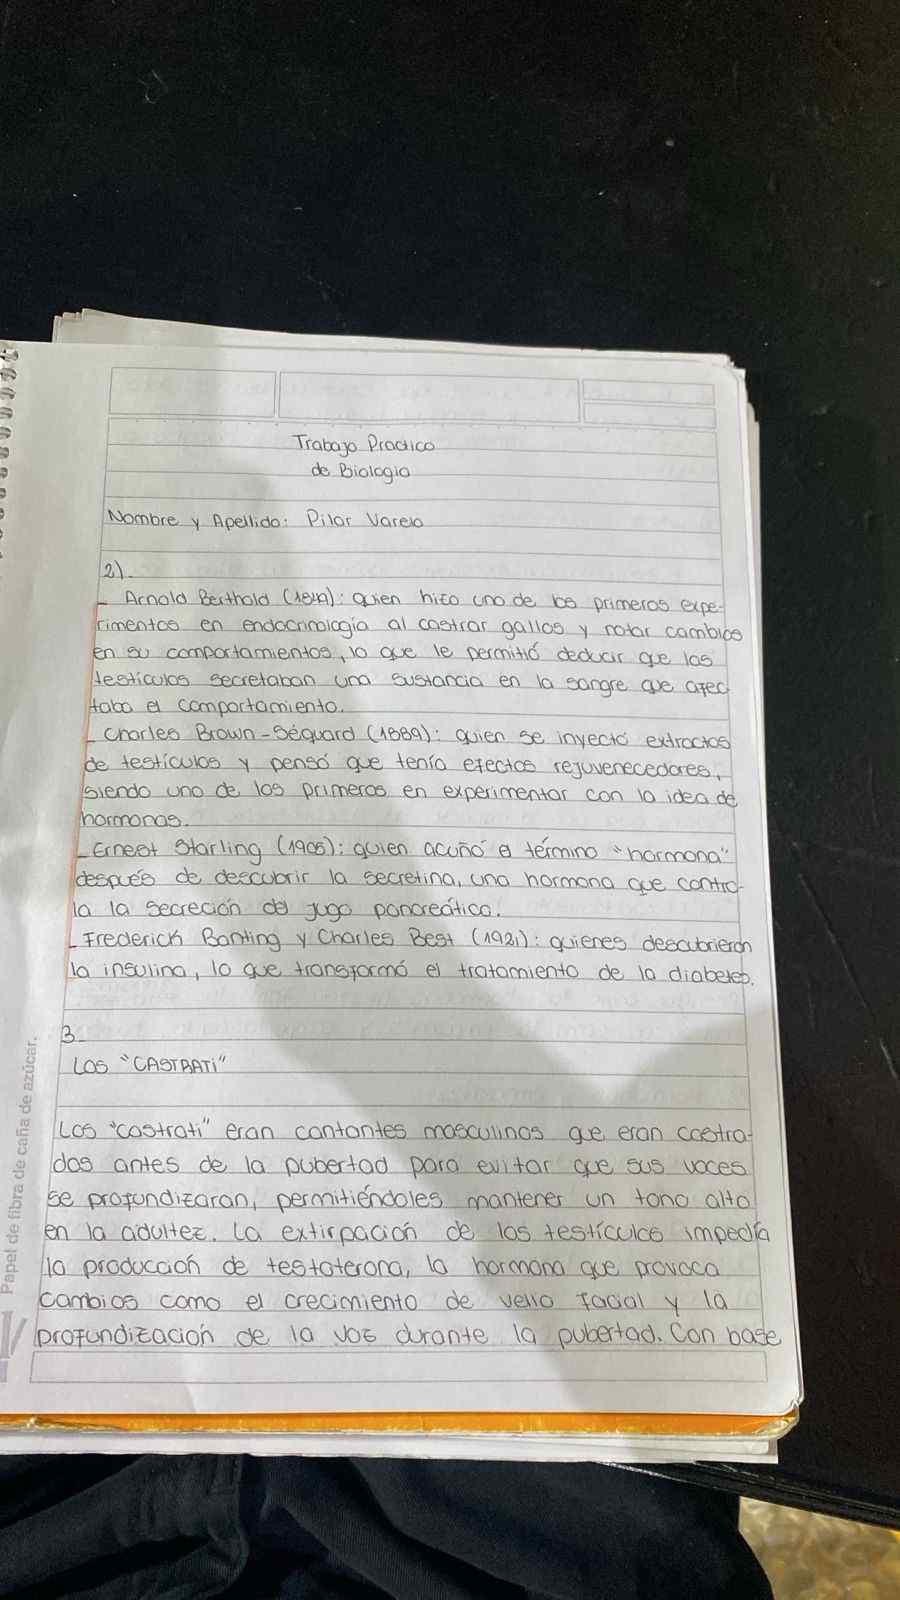 Trabajo Practico
de Biologia
Nombre y Apellido: Pilar Varela
2).
- Arnold Berthold (1849): quien hizo uno de los primeros expe-
rimentos en endocrinología al castrar gallos y notar cambios
en su comportamientos, lo que le permitió deducir que los
testículos secretaban una sustancia en la sangre que afec
taba el comportamiento.
- Charles Brown-Séquard (1889): quien se inyectó extractos
de testículos y pensó que tenía efectos rejuvenecedores,
siendo uno de los primeros en experimentar con la idea de
hormonas.
- Ernest Starling (1905): quien acuñó el término "hormona"
después de descubrir la secretina, una hormona que contro-
la la secreción del jugo pancreático.
- Frederick Banting y Charles Best (1921): quienes descubrieron
la insulina, lo que transformó el tratamiento de la diabetes.
3-
LOS "CASTRATi"
Los "castrati" eran cantantes masculinos que eran castra-
dos antes de la pubertad para evitar que sus voces
se profundizaran, permitiéndoles mantener un tono alto
en la adultez. La extirpación de los testículos impedía
la producción de testoterona, la hormona que provoca
cambios como el crecimiento de vello facial y la
profundización de la voz durante la pubertad. Con base
Papel de fibra de caña de azúcar.